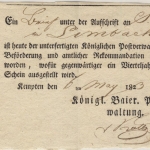 Ein Brief unter der Aufschrift an
Limbach
ist heute der unterfertigten Königlichen Postverwa
Beförderung und amtlicher Rekommandation
worden, wofür gegenwärtiger ein Vierteljah
Schein ausgestellt wird.
Kempten den 6 May 183
Königl. Baier. P
waltung.